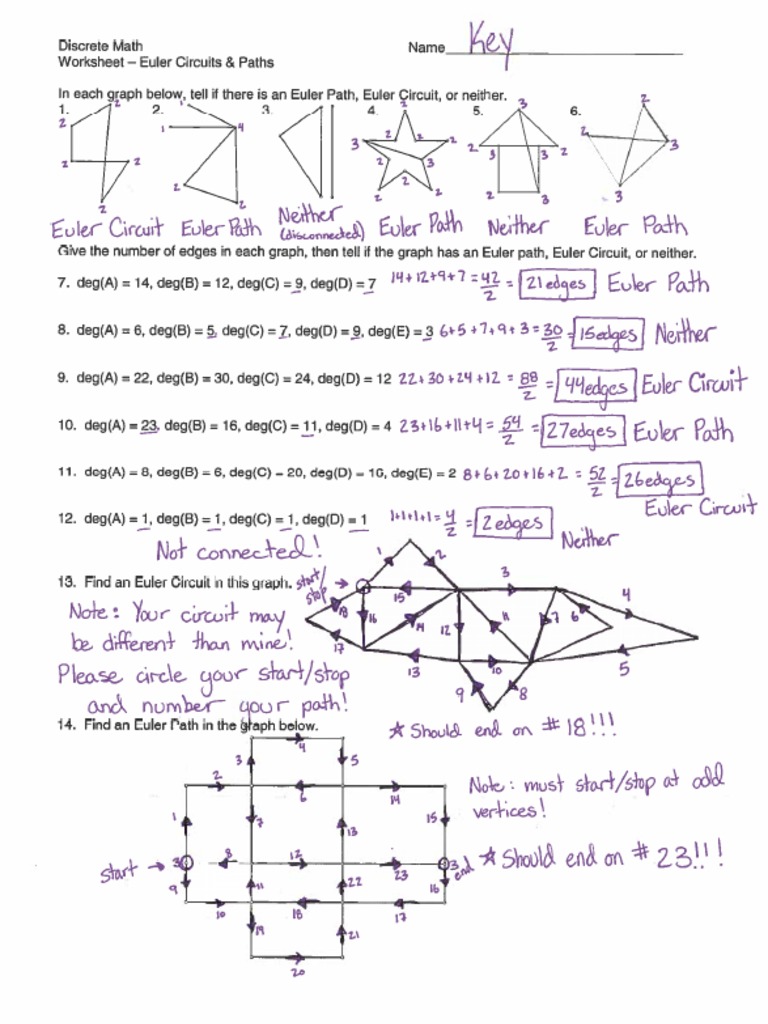 Discrete Math
Name Key
Worksheet – Euler Circuits & Paths
In each graph below, tell if there is an Euler Path, Euler Circuit, or neither.
1. 2. 3. 4. 5. 6.
2 2 2 2 2
1 4 2 2
2 2 2 2 2 3 3 2 2 2
3 2 3 3 2 2 3
2 2 3 3
Euler Circuit Euler Path Neither (disconnected) Euler Path Neither Euler Path
Give the number of edges in each graph, then tell if the graph has an Euler path, Euler Circuit, or neither.
7. deg(A) = 14, deg(B) = 12, deg(C) = 9, deg(D) = 7 14+12+9+7 = 42/2 = 21 edges Euler Path
8. deg(A) = 6, deg(B) = 5, deg(C) = 7, deg(D) = 9, deg(E) = 3 6+5+7+9+3 = 30/2 = 15 edges Neither
9. deg(A) = 22, deg(B) = 30, deg(C) = 24, deg(D) = 12 22+30+24+12 = 88/2 = 44 edges Euler Circuit
10. deg(A) = 23, deg(B) = 16, deg(C) = 11, deg(D) = 4 23+16+11+4 = 54/2 = 27 edges Euler Path
11. deg(A) = 8, deg(B) = 6, deg(C) = 20, deg(D) = 16, deg(E) = 2 8+6+20+16+2 = 52/2 = 26 edges
Euler Circuit
12. deg(A) = 1, deg(B) = 1, deg(C) = 1, deg(D) = 1 1+1+1+1 = 4/2 = 2 edges Neither
Not connected!
13. Find an Euler Circuit in this graph. start/stop →
1 2 3 4
15 18 16 14 12 11 7 6
17 13 10 5
9 8
Note: Your circuit may
be different than mine!
Please circle your start/stop
and number your path!
14. Find an Euler Path in the graph below.
★ Should end on # 18!!!
4
3 5
2 6 14
1 7 13 15
Note: must start/stop at odd
vertices!
start → 3 8 12 23 3 end
★ Should end on # 23!!!
9 11 22 16
10 18 17
19 21
20